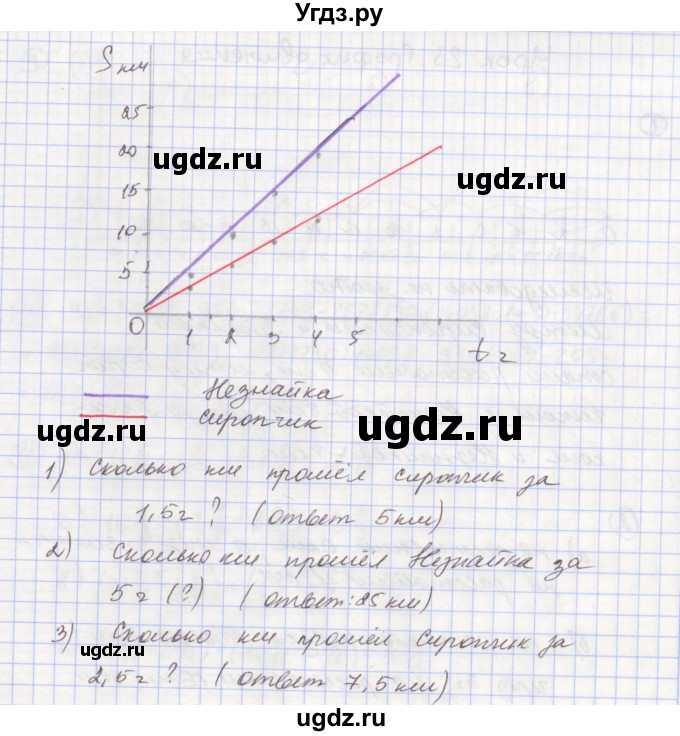 Угдз.ру
S км
25
20
15
10
5
0 1 2 3 4 5
t ч
Незнайка
сиропчик
1) Сколько км прошёл сиропчик за
1,5ч? (ответ 5км)
2) Сколько км прошёл Незнайка за
5ч (?) (ответ: 25 км)
3) Сколько км прошёл Сиропчик за
2,5ч? (ответ 7,5 км)
ugdz.ru
ugdz.ru
ugdz.ru
ugdz.ru
ugdz.ru
ugdz.ru
ugdz.ru